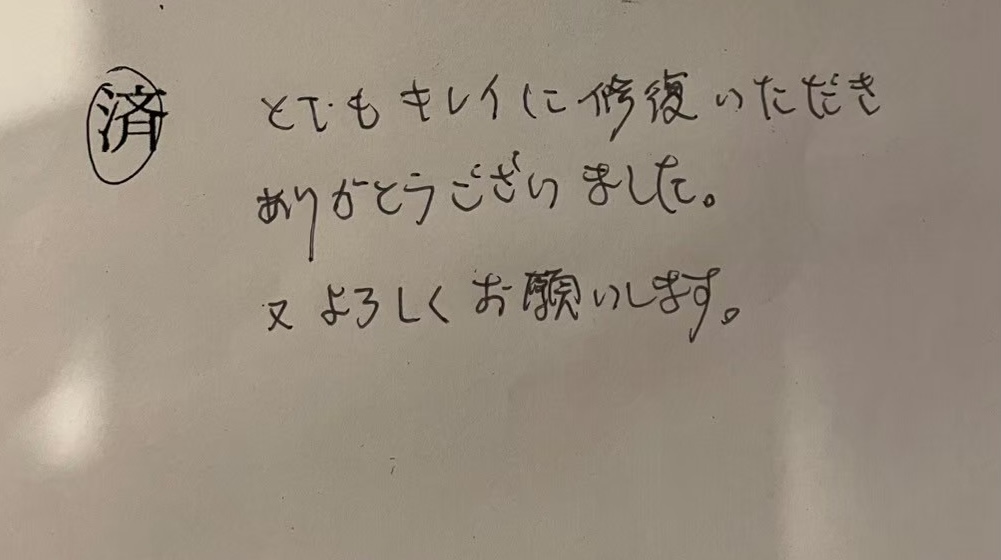 済 とてもキレイに修復いただき
ありがとうございました。
又よろしくお願いします。